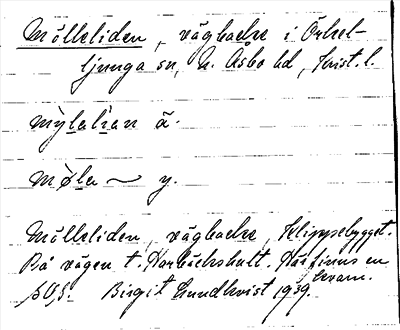 Mölleliden, vägbacke i Örkel-
ljunga sn, N. Åsbo hd, Krist. l.
mỳlalían ä.
mø̀la ~ y.
Mölleliden, vägbacke, Klippebygget.
På vägen t. Harbäckshult. Här finns en
kvarn.
SOS. Birgit Lundkvist 1939.